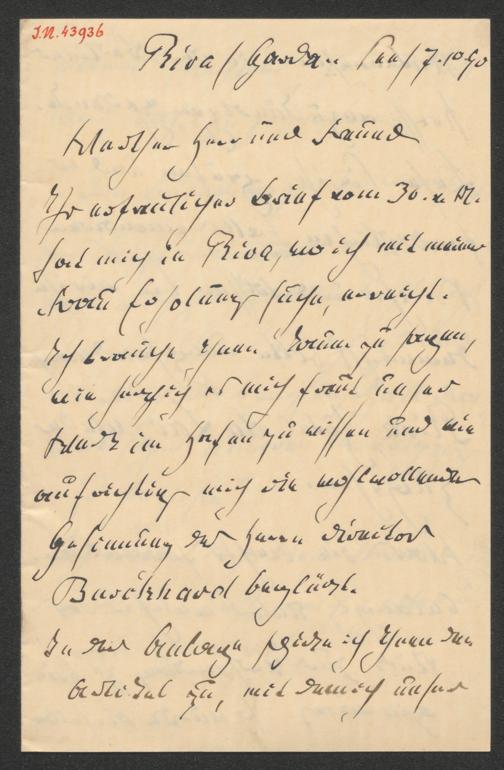 I.N. 43936
Riva / Garda-See / 7.10.90
Werther Herr und Freund
Ihr erfreulicher Brief vom 30. v. M.
hat mich in Riva, wo ich mit meiner
Frau Erholung suche, erreicht.
Ich brauche Ihnen kaum zu sagen,
wie herzlich es mich freut unser
Werk im Hafen zu wissen und wie
aufrichtig mich die wohlwollende
Gesinnung des Herrn Direktor
Burckhard beglückt.
In der Anlage schicke ich Ihnen den
Artikel zu, mit dem ich unser